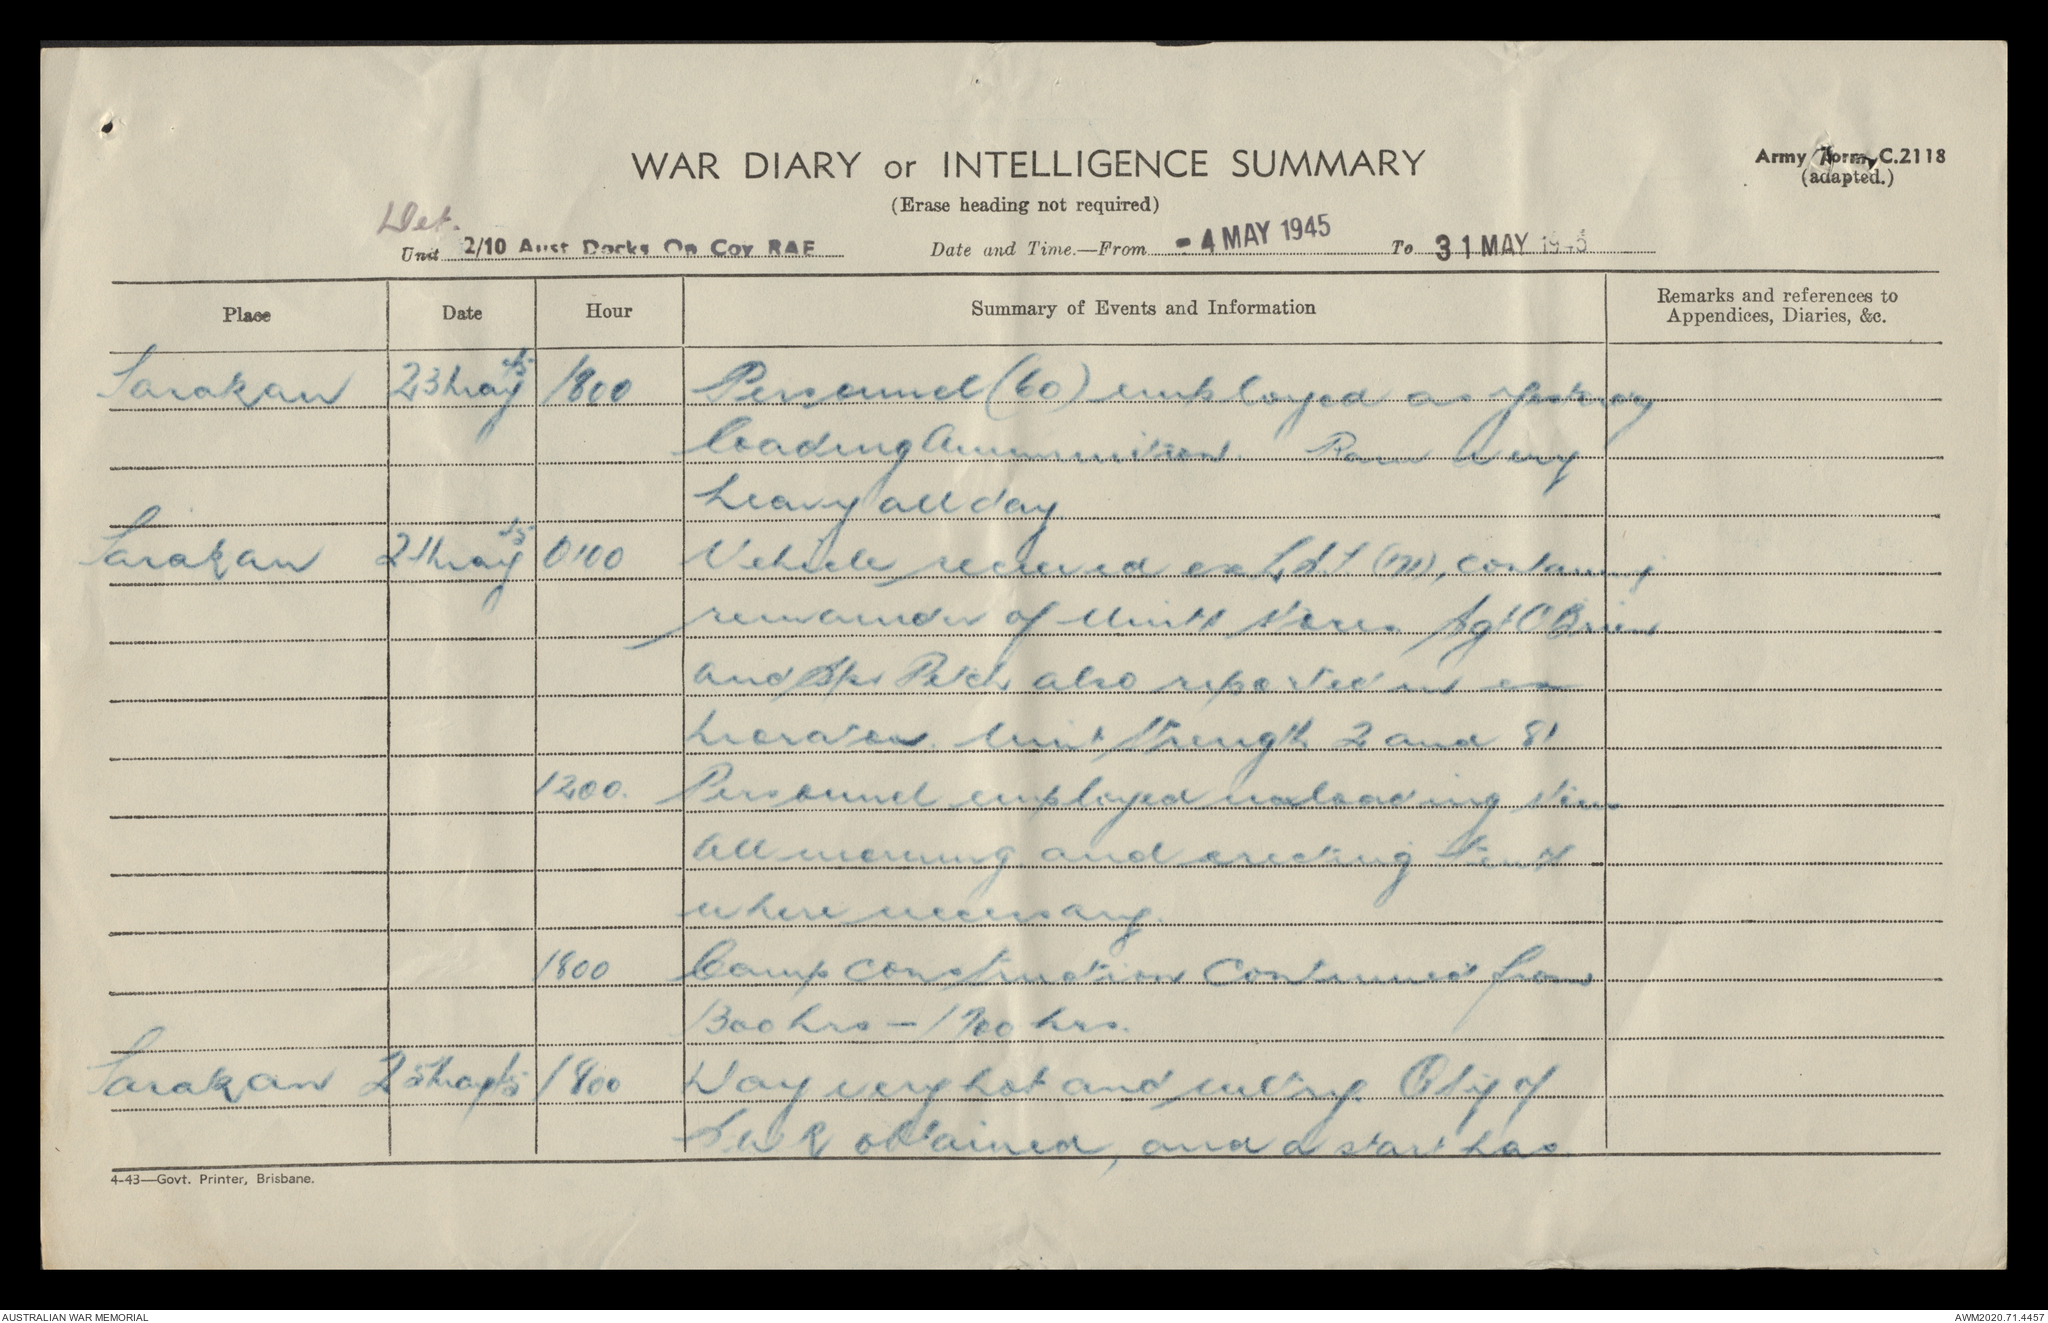 WAR DIARY or INTELLIGENCE SUMMARY
Army Form C.2118
(adapted.)
(Erase heading not required)
Det.
Unit 2/10 Aust Docks Op Coy RAE Date and Time.—From - 4 MAY 1945 To 31 MAY 1945
Place Date Hour Summary of Events and Information Remarks and references to Appendices, Diaries, &c.
Tarakan 23 May 45 1800 Personnel (60) employed as yesterday
loading Ammunition. Rain very
heavy all day
Tarakan 24 May 45 0100 Vehicle recieved ex L.S.T, containing
remainder of Units stores Sgt O'Brien
and Spr Petch also reported in ex
Morotai. Unit strength 2 and 81
1200. Personnel employed unloading stores
all morning and erecting tents
where necessary.
1800 Camp construction continued from
1300 hrs — 1700 hrs.
Tarakan 25 May 45 1800 Day very hot and sultry. Qty of
obtained, and a start has
4-43—Govt. Printer, Brisbane.
AUSTRALIAN WAR MEMORIAL
AWM2020.71.4457